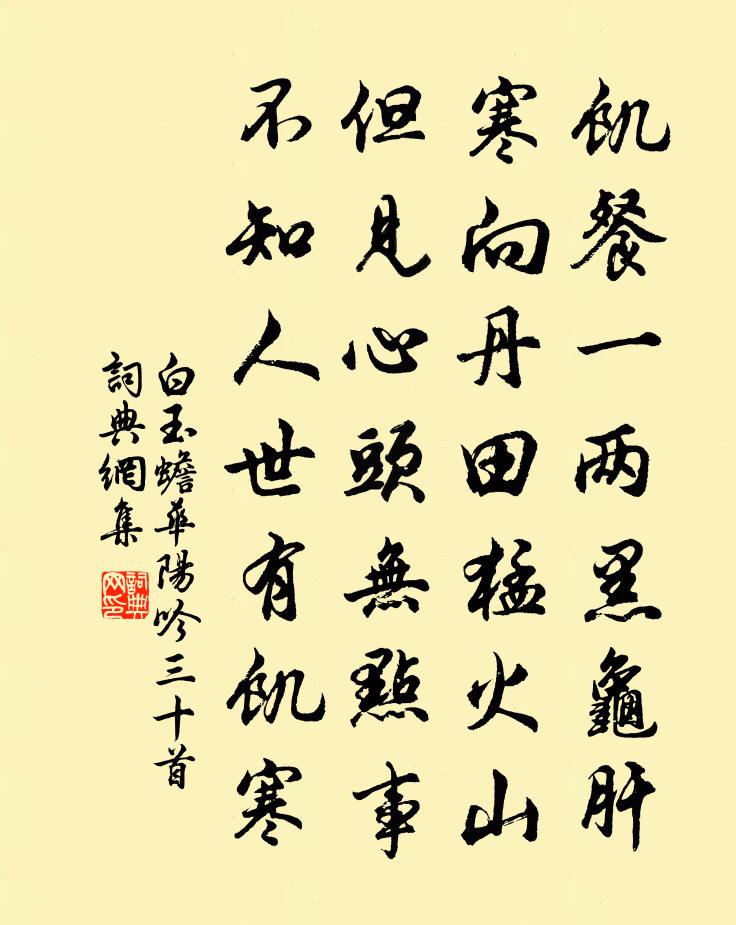 飢餐一两黑龜肝
寒向丹田猛火山
但見心頭無點事
不知人世有飢寒
白玉蟾華陽吟三十首
詞典網集
詞典网印